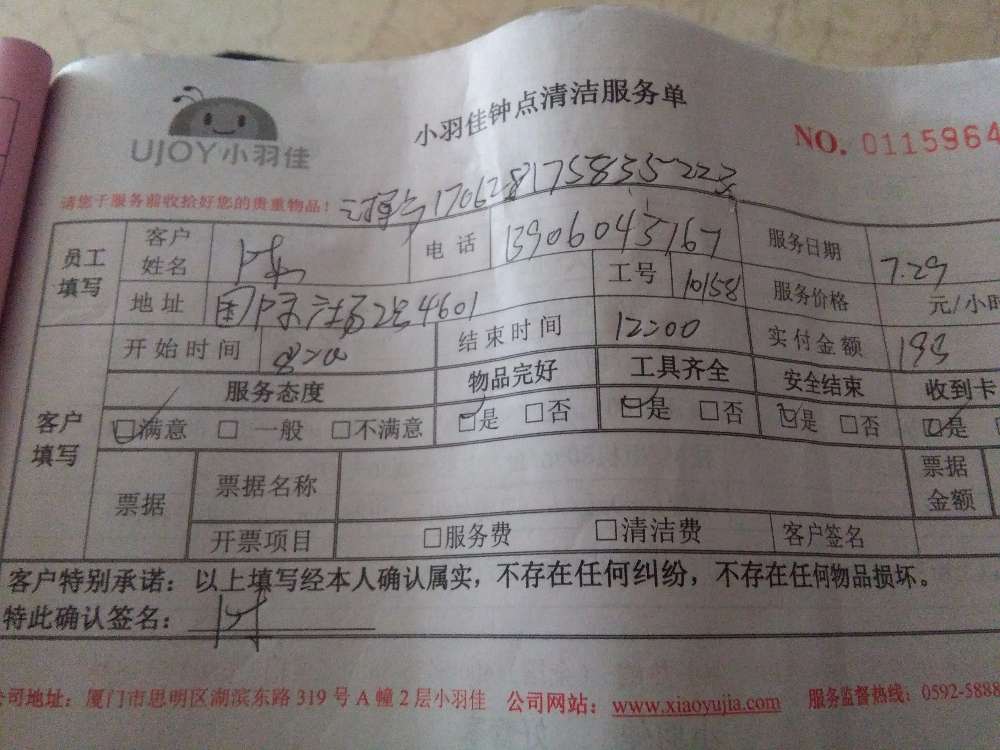 小羽佳钟点清洁服务单
UJOY小羽佳
NO. 0115964
请您于服务前收拾好您的贵重物品！
员工填写 客户姓名 电话 13906045167 服务日期 7.29
地址 国际 4601 工号 10158 服务价格 元/小时
开始时间 结束时间 12:00 实付金额
客户填写 服务态度 物品完好 工具齐全 安全结束 收到卡
☑满意 □一般 □不满意 ☑是 □否 ☑是 □否 ☑是 □否 ☑是
票据 票据名称 票据金额
开票项目 □服务费 □清洁费 客户签名
客户特别承诺：以上填写经本人确认属实，不存在任何纠纷，不存在任何物品损坏。
特此确认签名：
公司地址：厦门市思明区湖滨东路319号A幢2层小羽佳 公司网站：www.xiaoyujia.com 服务监督热线：0592-5888